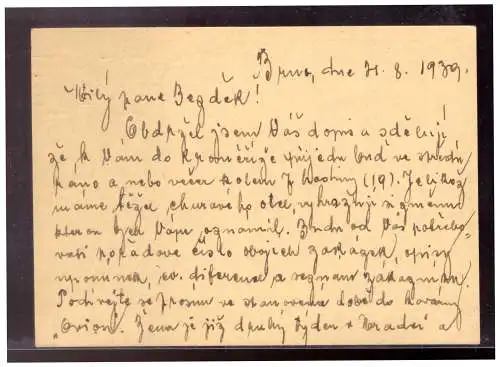 Brno, dne 21. 8. 1939.
Milý pane Bezděk!
Obdržel jsem Váš dopis a sděluji
že k Vám do Kroměříže přijedu buď ve středu
ráno a nebo večer kolem 7 hodiny (19). Jelikož
máme těžce churavého otce, vyhražuji si změnu
kterou bych Vám oznámil. Budu od Vás potřebo-
vati pořadové číslo obojích zakázek, opisy
upomínek, ev. diference a seznam zákazníků.
Podívejte se prosím ve stanovená době do kavárny
„Orion". Žena je již druhý týden v Hradci a